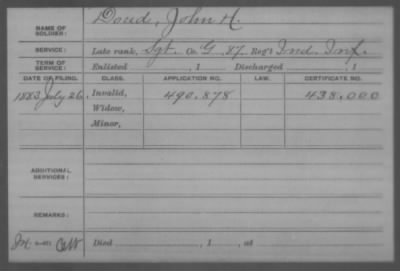 Doud, John H.
NAME OF
SOLDIER:
SERVICE: Late rank, Sgt. Co. G, 87. Reg't Ind. Inf.
TERM OF
SERVICE: Enlisted , 1 Discharged , 1
DATE OF FILING. CLASS. APPLICATION NO. LAW. CERTIFICATE NO.
1883 July 26, Invalid, 490.878 438.000
Widow,
Minor,
ADDITIONAL
SERVICES:
REMARKS:
Died , 1 , at